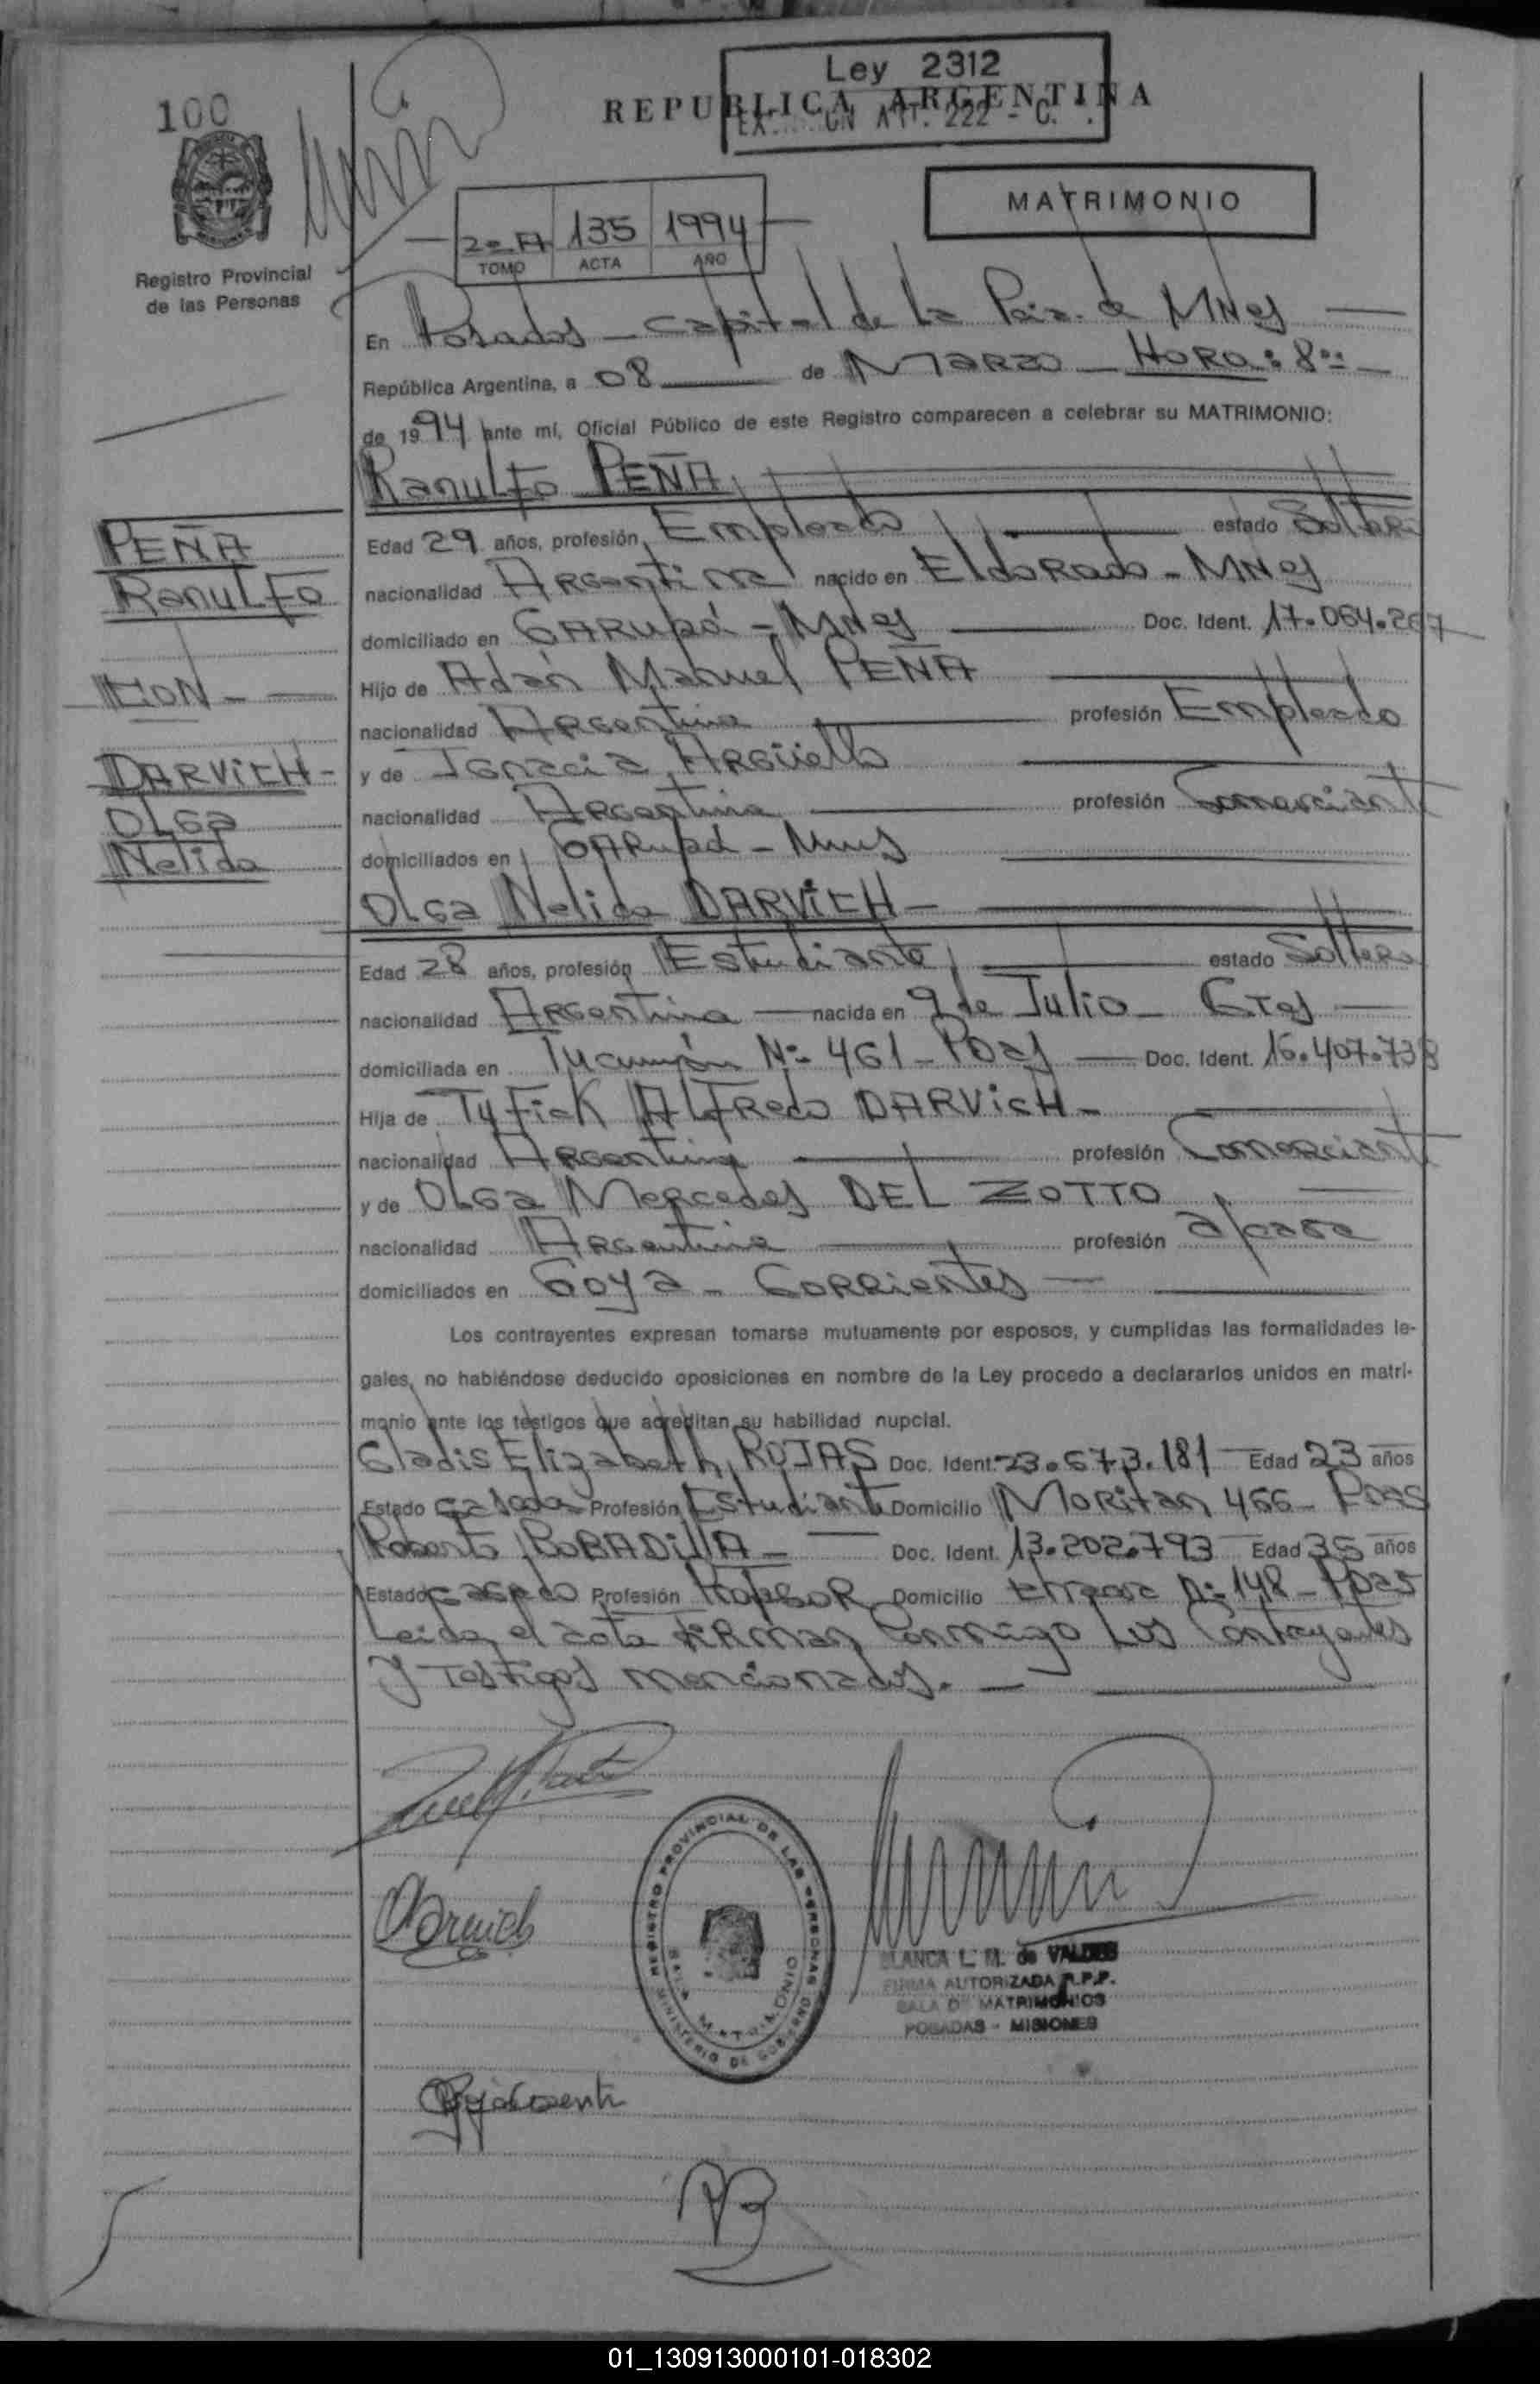 Ley 2312
REPUBLICA ARGENTINA
100
MATRIMONIO
2º A 135 1994
TOMO ACTA AÑO
Registro Provincial
de las Personas
En Posadas - Capital de la Pcia. de MNes
República Argentina, a 08 de MARZO - HORA: 8
de 1994 ante mí, Oficial Público de este Registro comparecen a celebrar su MATRIMONIO:
Ranulfo PEÑA
PEÑA
Ranulfo
CON -
DARVICH -
Olga
Nelida
Edad 29 años, profesión Empleado estado Soltero
nacionalidad Argentina nacido en Eldorado - MNes
domiciliado en GARUPÁ - MNes Doc. Ident. 17.064.267
Hijo de Adán Manuel PEÑA
nacionalidad Argentina profesión Empleado
y de Ignacia Argüello
nacionalidad Argentina profesión Comerciante
domiciliados en GARUPÁ - Mnes
Olga Nelida DARVICH -
Edad 28 años, profesión Estudiante estado Soltera
nacionalidad Argentina nacida en 9 de Julio - Ctes
domiciliada en Tucumán Nº 461 - Pdas Doc. Ident. 16.407.738
Hija de Tyfick Alfredo DARVICH -
nacionalidad Argentina profesión Comerciante
y de Olga Mercedes DEL ZOTTO
nacionalidad Argentina profesión a/casa
domiciliados en Goya - Corrientes
Los contrayentes expresan tomarse mutuamente por esposos, y cumplidas las formalidades le-
gales, no habiéndose deducido oposiciones en nombre de la Ley procedo a declararlos unidos en matri-
monio ante los testigos que acreditan su habilidad nupcial.
Gladis Elizabeth ROJAS Doc. Ident. 23.673.181 Edad 23 años
Estado Casada Profesión Estudiante Domicilio Moritan 466 - Pdas
Roberto BOBADILLA - Doc. Ident. 13.202.793 Edad 35 años
Estado casado Profesión Profesor Domicilio Nº 148 - Pdas
Leida el acta firman Conmigo Los Contrayentes
y Testigos mencionados. -
Darvich
REGISTRO PROVINCIAL DE LAS PERSONAS
MINISTERIO DE GOBIERNO
SALA MATRIMONIO
BLANCA L. M. de VALDES
FIRMA AUTORIZADA R.P.P.
SALA DE MATRIMONIOS
POSADAS - MISIONES
01_130913000101-018302